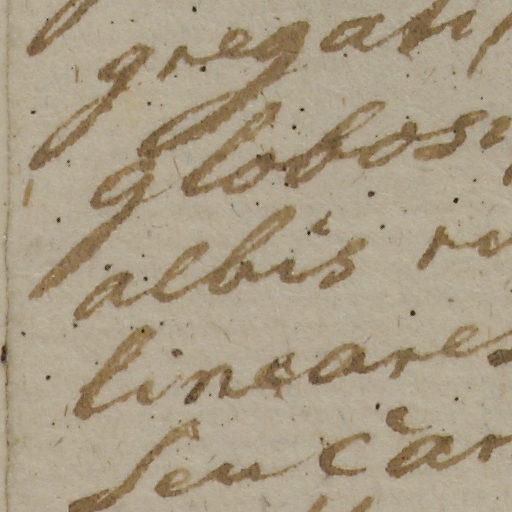 gregati
globosi
albis
lineares
seu car